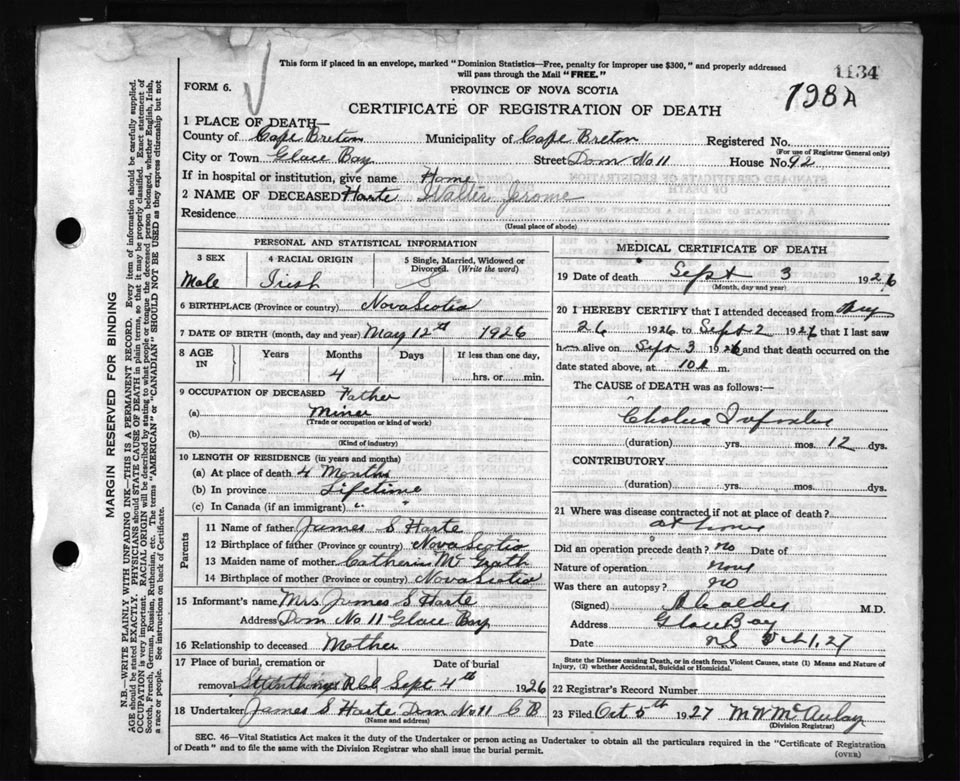 This form if placed in an envelope, marked "Dominion Statistics—Free, penalty for improper use $300," and properly addressed
will pass through the Mail "FREE."
1134
FORM 6.
PROVINCE OF NOVA SCOTIA
198A
CERTIFICATE OF REGISTRATION OF DEATH
1 PLACE OF DEATH—
County of Cape Breton Municipality of Cape Breton Registered No.
(For use of Registrar General only)
City or Town Glace Bay Street Dom No 11 House No. 92
If in hospital or institution, give name Home
2 NAME OF DECEASED Harte Walter Jerome
Residence
(Usual place of abode)
PERSONAL AND STATISTICAL INFORMATION
3 SEX 4 RACIAL ORIGIN 5 Single, Married, Widowed or Divorced. (Write the word)
Male Irish S
6 BIRTHPLACE (Province or country) Nova Scotia
7 DATE OF BIRTH (month, day and year) May 12th 1926
8 AGE IN Years Months Days If less than one day,
4 hrs. or min.
9 OCCUPATION OF DECEASED Father
(a) Miner
(Trade or occupation or kind of work)
(b)
(Kind of industry)
10 LENGTH OF RESIDENCE (in years and months)
(a) At place of death 4 Months
(b) In province Lifetime
(c) In Canada (if an immigrant) "
Parents
11 Name of father James S Harte
12 Birthplace of father (Province or country) Nova Scotia
13 Maiden name of mother Catherine McGrath
14 Birthplace of mother (Province or country) Nova Scotia
15 Informant's name Mrs James S Harte
Address Dom No 11 Glace Bay
16 Relationship to deceased Mother
17 Place of burial, cremation or removal Date of burial
St Anthonys R C C Sept 4th 1926
18 Undertaker James S Harte Dom No 11 C B
(Name and address)
MEDICAL CERTIFICATE OF DEATH
19 Date of death Sept 3 1926
(Month, day and year)
20 I HEREBY CERTIFY that I attended deceased from Aug
26 1926 to Sept 2 1926 that I last saw
h alive on Sept 3 1926 and that death occurred on the
date stated above, at 10 A m.
The CAUSE OF DEATH was as follows:—
Cholera Infantum
(duration) yrs. mos. 12 dys.
CONTRIBUTORY
(duration) yrs. mos. dys.
21 Where was disease contracted if not at place of death?
at home
Did an operation precede death? no Date of
Nature of operation none
Was there an autopsy? no
(Signed) M.D.
Address Glace Bay
Date N.S. Oct 1, 27
State the Disease causing Death, or in death from Violent Causes, state (1) Means and Nature of
Injury, (2) whether Accidental, Suicidal or Homicidal.
22 Registrar's Record Number
23 Filed Oct 5th 1927 M W McAulay
(Division Registrar)
SEC. 46—Vital Statistics Act makes it the duty of the Undertaker or person acting as Undertaker to obtain all the particulars required in the "Certificate of Registration
of Death" and to file the same with the Division Registrar who shall issue the burial permit.
(OVER)
MARGIN RESERVED FOR BINDING
N.B.—WRITE PLAINLY WITH UNFADING INK—THIS IS A PERMANENT RECORD. Every item of information should be carefully supplied.
AGE should be stated EXACTLY. PHYSICIANS should STATE CAUSE OF DEATH in plain terms, so that it may be properly classified. Exact statement of
OCCUPATION is very important. RACIAL ORIGIN will be described by stating to what people or tongue the deceased person belonged, whether English, Irish,
Scotch, French, German, Russian, Ruthenian, etc. The terms "AMERICAN" or "CANADIAN" SHOULD NOT BE USED as they express citizenship but not
a race or people. See instructions on back of Certificate.